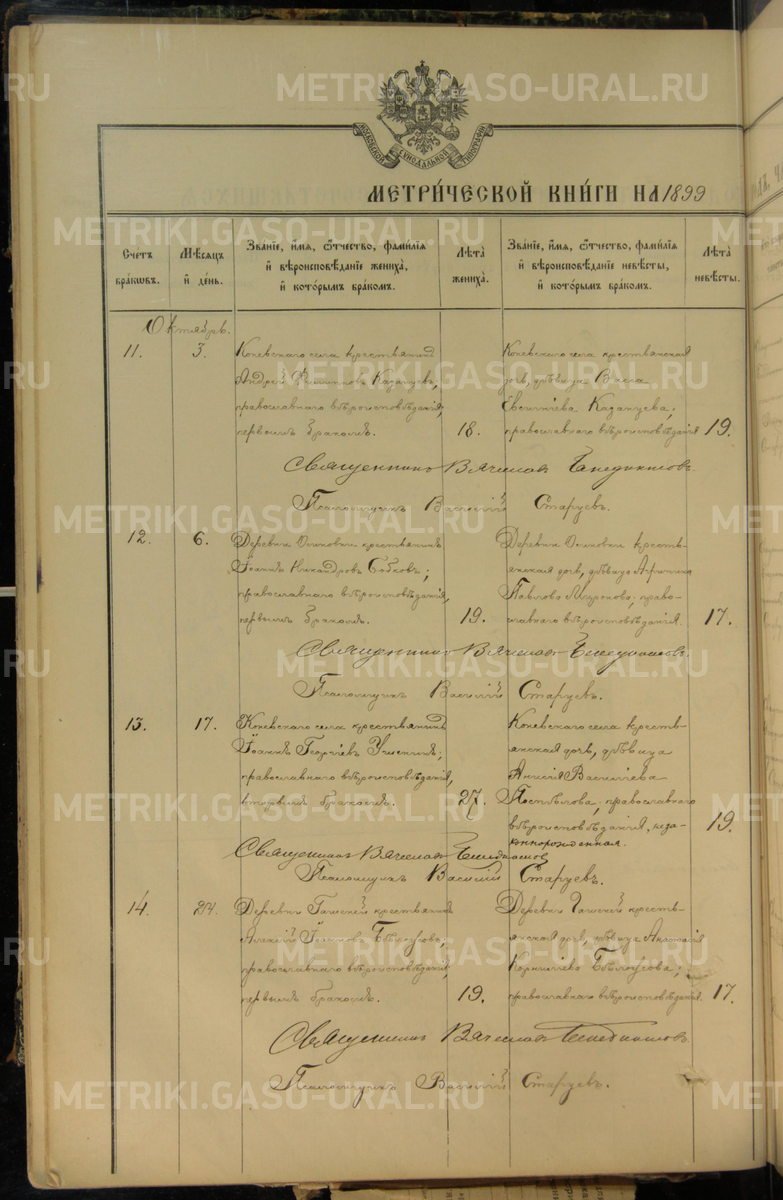 METRIKI.GASO-URAL.RU
МОСКОВСКОЙ СѴНОДАЛЬНОЙ ТИПОГРАФІИ
МЕТРИ́ЧЕСКОЙ КНИ́ГИ НА 1899
Счетъ бра́кѡвъ.
Мѣ́сяцъ и҆ де́нь.
Зва́нїе, и҆́мя, ѻ҆́тчество, фами́лїя и҆ вѣроисповѣ́данїе жениха̀, и҆ кото́рымъ бра́комъ.
Лѣ́та жениха̀.
Зва́нїе, и҆́мя, ѻ҆́тчество, фами́лїя и҆ вѣроисповѣ́данїе невѣ́сты, и҆ кото́рымъ бра́комъ.
Лѣ́та невѣ́сты.
Октябрь.
11.
3.
Коневскаго села крестьянинъ
Андрей Филипповъ Казанцевъ,
православнаго вѣроисповѣданія,
первымъ бракомъ.
18.
Коневскаго села крестьянская
дочь, дѣвица Васса
Казанцева,
православнаго вѣроисповѣданія
19.
Священникъ Вячеслав Бенедиктов
Псаломщикъ Василій Старцевъ.
12.
6.
Деревни крестьянинъ
Іоаннъ Никандровъ Бобковъ;
православнаго вѣроисповѣданія,
первымъ бракомъ.
19.
Деревни кресть-
янская дочь, дѣвица
Павлова ; право-
славнаго вѣроисповѣданія.
17.
Священникъ Вячеслав Бенедиктов
Псаломщикъ Василій Старцевъ.
13.
17.
Коневскаго села крестьянинъ
Іоаннъ Георгіевъ
православнаго вѣроисповѣданія,
вторымъ бракомъ.
27.
Коневскаго села кресть-
янская дочь, дѣвица
Анисія Васильева
Поспѣлова, православнаго
вѣроисповѣданія, неза-
коннорожденная.
19.
Священник Вячеслав Бенедиктов
Псаломщикъ Василій Старцевъ.
14.
24.
Деревни крестьянинъ
Алексій Іоанновъ Бѣлоусовъ,
православнаго вѣроисповѣданія,
первымъ бракомъ.
19.
Деревни кресть-
янская дочь, дѣвица Анастасія
Корниліева Бѣлоусова;
православнаго вѣроисповѣданія.
17.
Священник Вячеслав Бенедиктов
Псаломщикъ Василій Старцевъ.